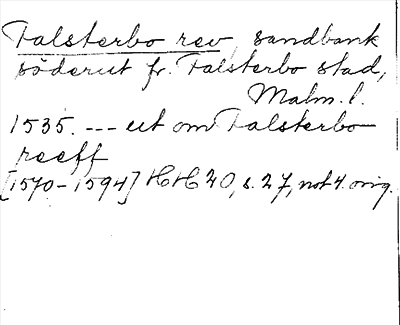 Falsterbo rev, sandbank
söderut fr. Falsterbo stad,
Malm. l.
1535. --- ut om Falsterbo
reeff
[1570-1594] HH 20, s. 27, not 4. orig.